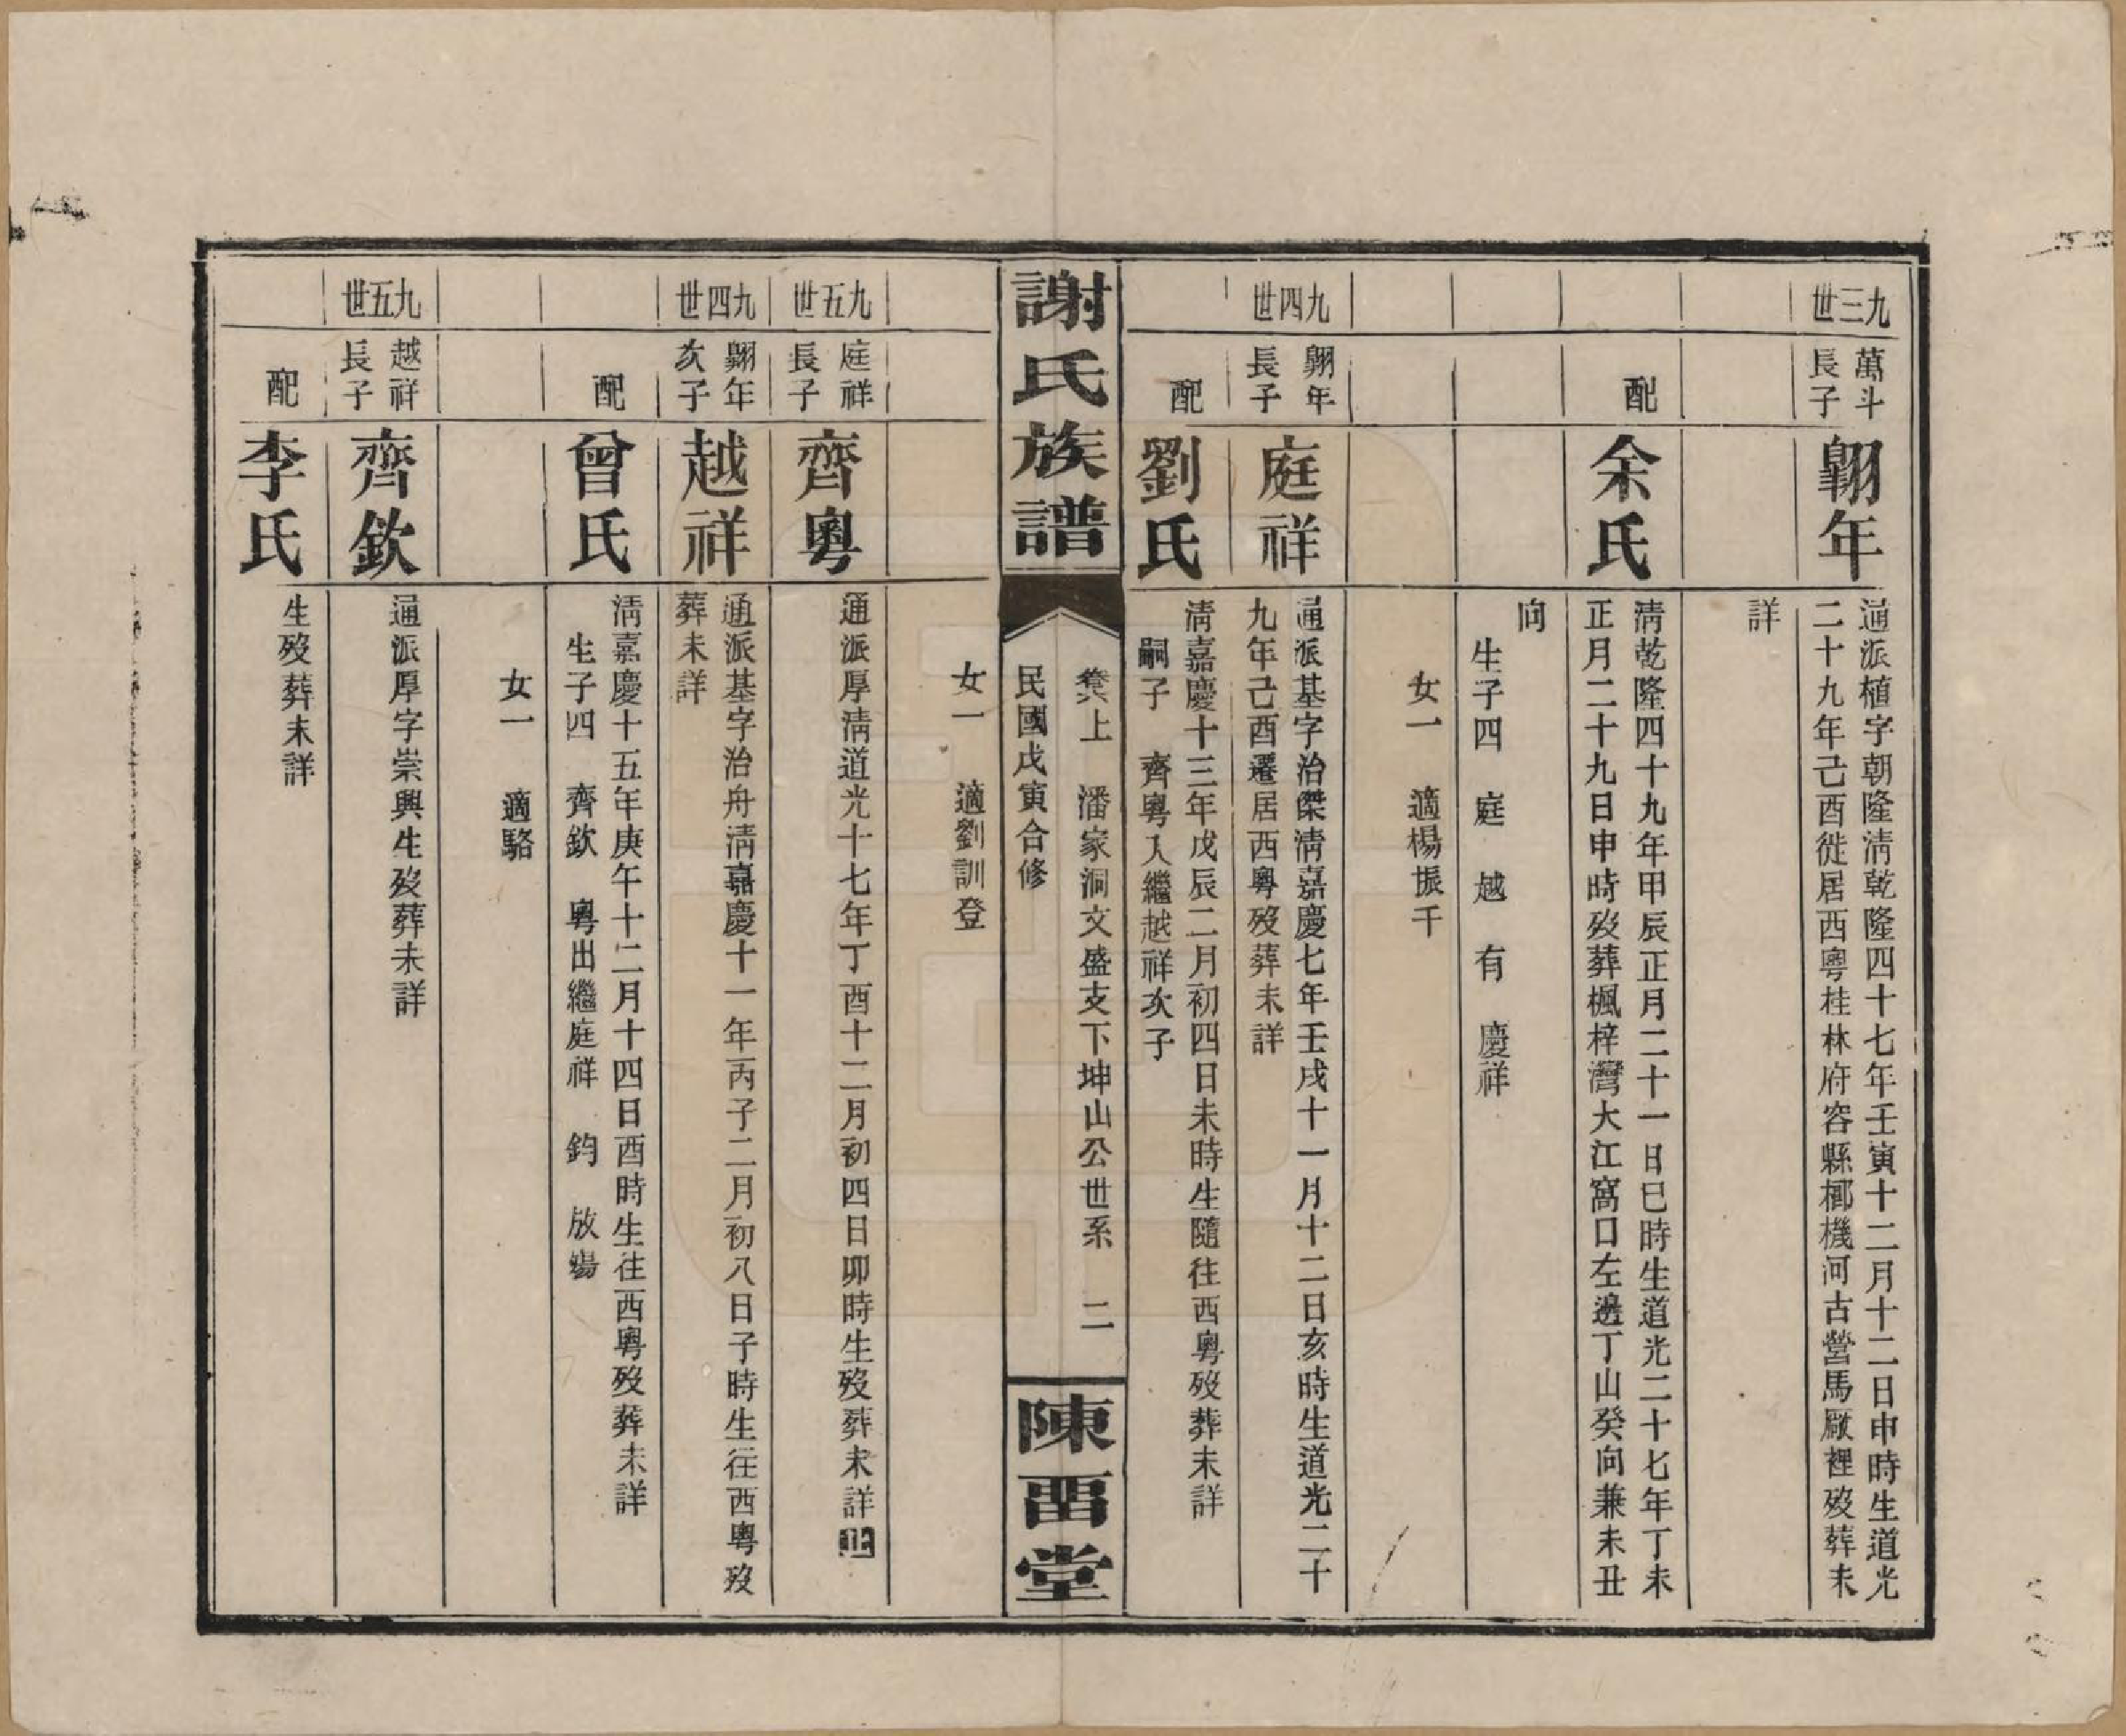 九三世
萬斗
長子
翺年
通派植字朝隆清乾隆四十七年壬寅十二月十二日申時生道光
二十九年己酉徙居西粵桂林府容縣梛機河古營馬厰裡歿葬未
詳
配
余氏
清乾隆四十九年甲辰正月二十一日巳時生道光二十七年丁未
正月二十九日申時歿葬楓梓灣大江窩口左邊丁山癸向兼未丑
向
生子四 庭 越 有 慶祥
女一 適楊振千
九四世
翺年
長子
庭祥
通派基字治傑清嘉慶七年壬戌十一月十二日亥時生道光二十
九年己酉遷居西粵歿葬未詳
配
劉氏
清嘉慶十三年戊辰二月初四日未時生隨往西粵歿葬未詳
嗣子 齊粵入繼越祥次子
謝氏族譜
卷六上 潘家洞文盛支下坤山公世系 二
民國戊寅合修
陳畱堂
女一 適劉訓登
九五世
庭祥
長子
齊粵
通派厚清道光十七年丁酉十二月初四日卯時生歿葬未詳止
九四世
翺年
次子
越祥
通派基字治舟清嘉慶十一年丙子二月初八日子時生往西粵歿
葬未詳
配
曾氏
清嘉慶十五年庚午十二月十四日酉時生往西粵歿葬未詳
生子四 齊欽 粵出繼庭祥 鈞 放殤
女一 適駱
九五世
越祥
長子
齊欽
通派厚字崇興生歿葬未詳
配
李氏
生歿葬未詳